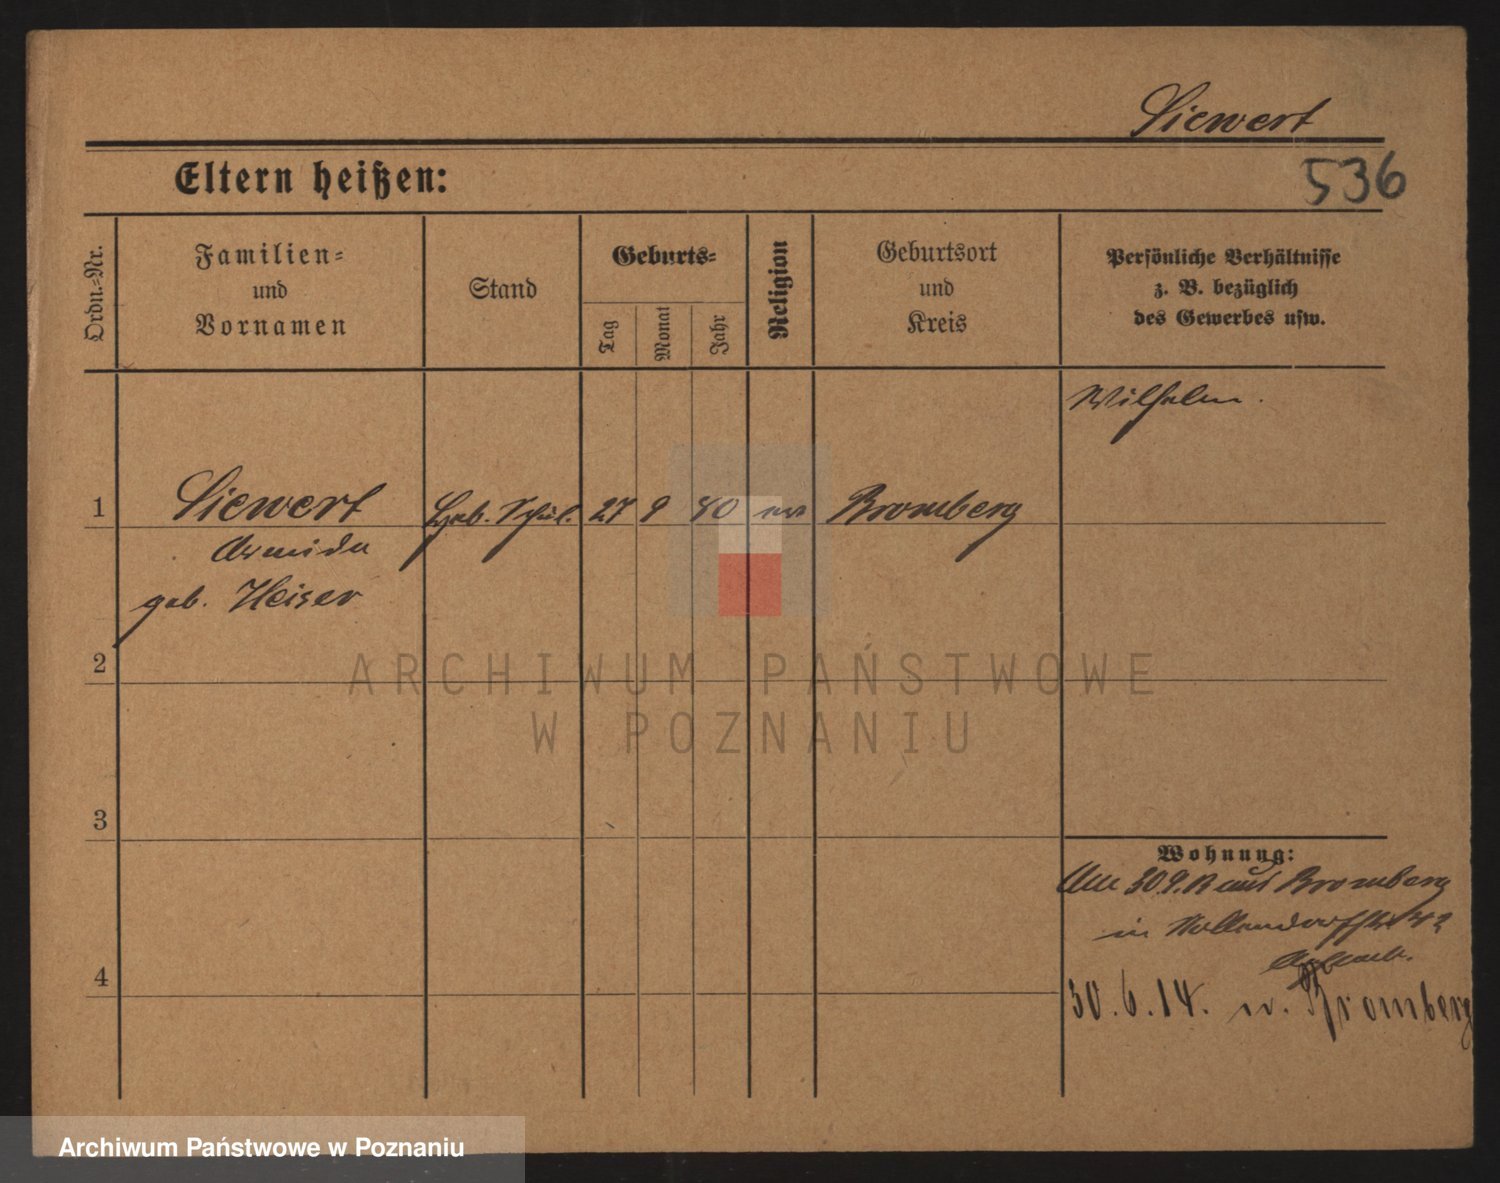 Siewert
Eltern heißen:
536
Ordn.-Nr.
Familien-
und
Vornamen
Stand
Geburts-
Tag
Monat
Jahr
Religion
Geburtsort
und
Kreis
Persönliche Verhältnisse
z. B. bezüglich
des Gewerbes usw.
Wilhelm.
1
Siewert 27 9 Bromberg
geb. Heiser
2
ARCHIWUM PAŃSTWOWE
W POZNANIU
3
Wohnung:
30.9. aus Bromberg
in
4
30.6.14. n. Bromberg
Archiwum Państwowe w Poznaniu